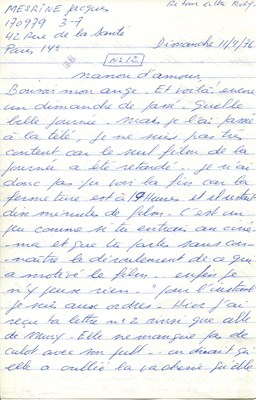 MESRINE Jacques
170979 3-7
42 Rue de la Santé
Paris 14e
Dimanche 11/9/76
N°12
manon d'amour,
Bonsoir mon ange. Et voilà encore
un dimanche de passé. Quelle
belle journée. Mais je l'ai passé
à la télé, je ne suis pas très
content car le seul film de la
journée a été retardé.. je n'ai
donc pas pu voir la fin car la
fermeture est à 19 heures et il restait
dix minutes de film. C'est un
peu comme si tu entrais au ciné-
ma et que tu partes sans con-
naître le déroulement de ce qui
a motivé le film.. enfin je
n'y peux rien. "pour l'instant"
je suis aux ordres. Hier j'ai
reçu ta lettre n°2 ainsi que celle
de. Elle ne manque pas de
culot avec son pull.. on dirait qu'
elle a oublié la vacherie qu'elle